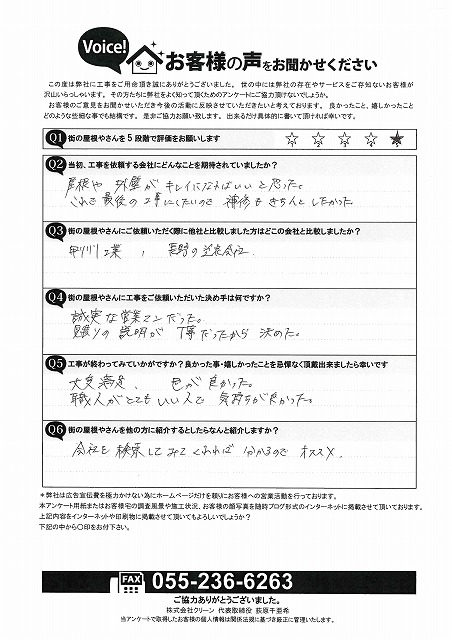 Voice!
お客様の声をお聞かせください
この度は弊社に工事をご用命頂き誠にありがとうございました。 世の中には弊社の存在やサービスをご存知ないお客様が
沢山いらっしゃいます。 その方たちに弊社をよく知って頂くためのアンケートにご協力頂けないでしょうか。
お客様のご意見をお聞かせいただき今後の活動に反映させていただきたいと考えております。 良かったこと、嬉しかったこと
どのような些細な事でも結構です。 是非ご協力お願い致します。 出来るだけ具体的に書いて頂ければ幸いです。
Q1 街の屋根やさんを5段階で評価をお願いします ☆ ☆ ☆ ☆ ★
Q2 当初、工事を依頼する会社にどんなことを期待されていましたか?
屋根や 外壁が キレイになればいいと思った。
これで最後の工事にしたいので 補修も きちんとしたかった
Q3 街の屋根やさんにご依頼いただく際に他社と比較しました方はどこの会社と比較しましたか?
工業 , 長野の 会社
Q4 街の屋根やさんに工事をご依頼いただいた決め手は何ですか?
誠実な営業マンだった。
見積りの 説明が 丁寧だったから 決めた。
Q5 工事が終わってみていかがですか?良かった事・嬉しかったことを忌憚なく頂戴出来ましたら幸いです
大変満足、 色が良かった。
職人がとても いい人で 気持ちが良かった。
Q6 街の屋根やさんを他の方に紹介するとしたらなんと紹介しますか?
会社を 検索してみてくれれば 分かるので オススメ.
*弊社は広告宣伝費を極力かけない為にホームページだけを頼りにお客様への営業活動を行っております。
本アンケート用紙またはお客様宅の調査風景や施工状況、お客様の顔写真を随時ブログ形式のインターネットに掲載させて頂いております。
上記内容をインターネットや印刷物に掲載させて頂いてもよろしいでしょうか?
下記の中から○印をお付下さい。
FAX 055-236-6263
ご協力ありがとうございました。
株式会社クリーン 代表取締役 荻原千亜希
当アンケートで取得したお客様の個人情報は関係法規に基づき厳正に管理いたします。